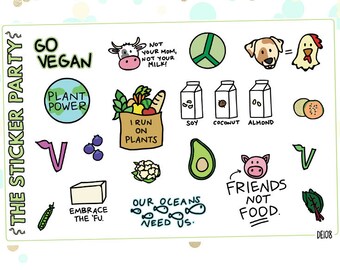 THE STICKER PARTY
GO
VEGAN
NOT
YOUR MOM,
NOT YOUR
MILK!
PLANT
POWER
I RUN
ON
PLANTS
SOY
COCONUT
ALMOND
V
V
EMBRACE
THE 'FU.
OUR OCEANS
NEED US.
FRIENDS
NOT
FOOD.
DE108